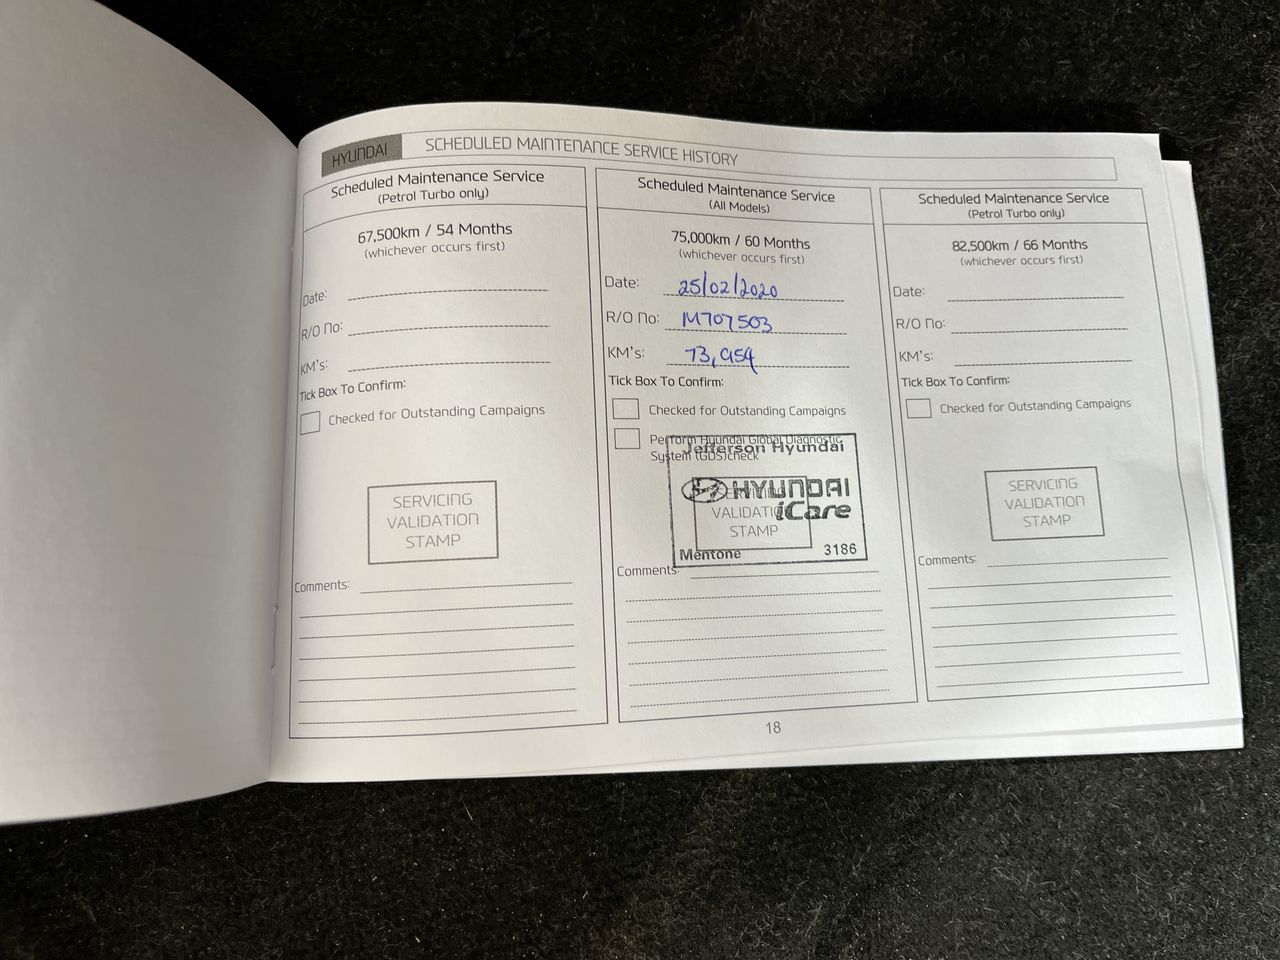 HYUNDAI SCHEDULED MAINTENANCE SERVICE HISTORY
Scheduled Maintenance Service
(Petrol Turbo only)
67,500km / 54 Months
(whichever occurs first)
Date:
R/O No:
KM's:
Tick Box To Confirm:
Checked for Outstanding Campaigns
SERVICING
VALIDATION
STAMP
Comments:
Scheduled Maintenance Service
(All Models)
75,000km / 60 Months
(whichever occurs first)
Date: 25/02/2020
R/O No: M707503
KM's: 73,954
Tick Box To Confirm:
Checked for Outstanding Campaigns
Perform Hyundai Global Diagnostic
System (GDS)check
Jefferson Hyundai
HYUNDAI
iCare
Mentone 3186
SERVICING
VALIDATION
STAMP
Comments:
Scheduled Maintenance Service
(Petrol Turbo only)
82,500km / 66 Months
(whichever occurs first)
Date:
R/O No:
KM's:
Tick Box To Confirm:
Checked for Outstanding Campaigns
SERVICING
VALIDATION
STAMP
Comments:
18